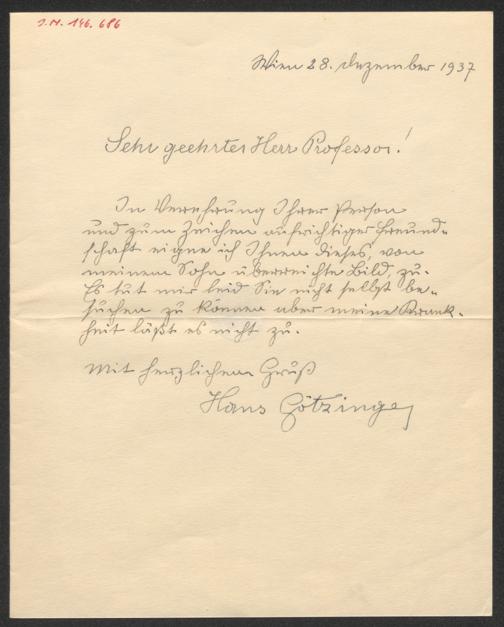 J.N. 146.686
Wien 28. Dezember 1937
Sehr geehrter Herr Professor!
In Verehrung Ihrer Person
und zum Zeichen aufrichtiger Freund-
schaft eigne ich Ihnen dieses, von
meinem Sohn überreichte Bild, zu.
Es tut mir leid Sie nicht selbst be-
suchen zu können aber meine Krank-
heit läßt es nicht zu.
Mit herzlichem Gruß
Hans Götzinger